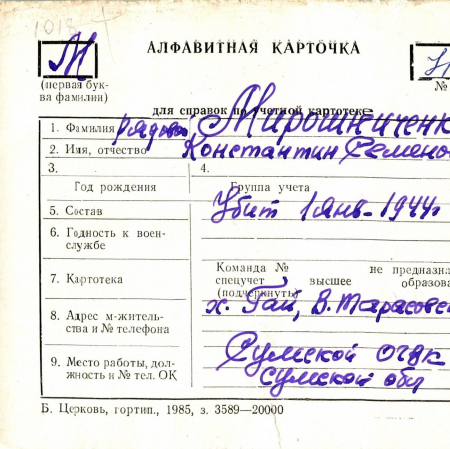 1018
М
АЛФАВИТНАЯ КАРТОЧКА
(первая бук-
ва фамилии)
№
для справок по учетной картотеке
1. Фамилия рядовой, Мирошниченк
2. Имя, отчество Константин Семено
3.
4.
Год рождения
Группа учета
5. Состав
Убит 1 янв-1944г
6. Годность к воен-
службе
7. Картотека
Команда № не предназна
спецучет высшее образова
(подчеркнуть)
8. Адрес м-житель-
ства и № телефона
х. Гай, В. Тарасовс
9. Место работы, дол-
жность и № тел. ОК
Сумской
Сумской обл
Б. Церковь, гортип., 1985, з. 3589—20000